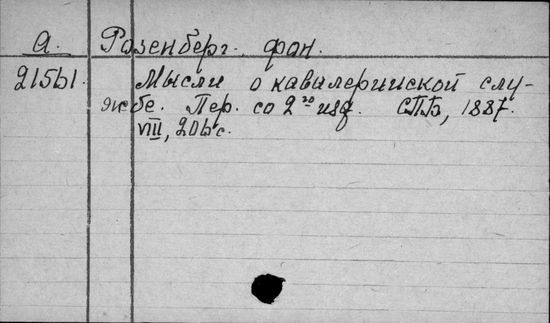 А. Розенберг, фон.
21561. Мысли о кавалерийской слу-
жбе. Пер. со 2го изд. СПБ, 1887.
VIII, 206 с.